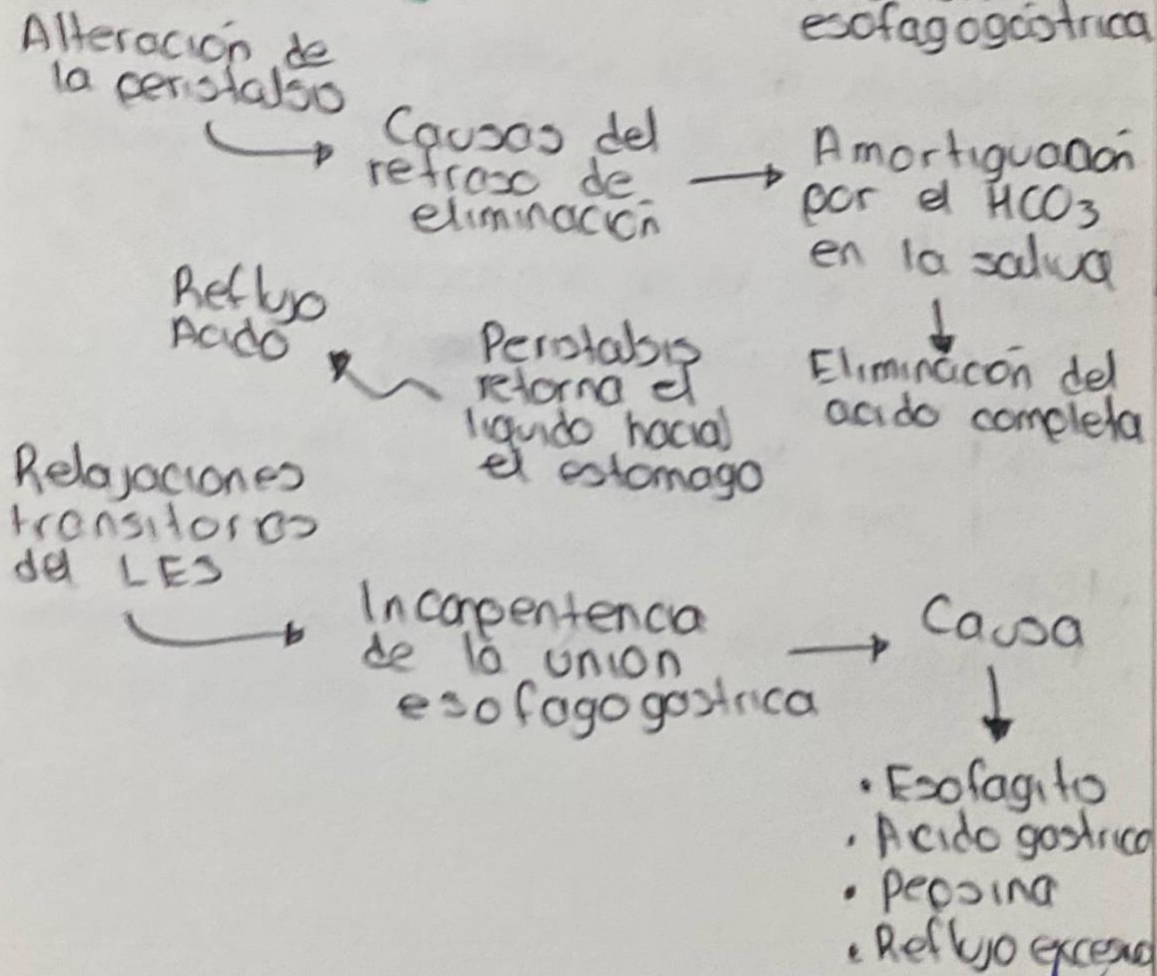 esofagogástrica
Alteración de
la peristalsis
Causas del
retraso de
eliminación
Amortiguación
por el HCO3
en la saliva
Reflujo
Acido
Peristalsis
retorna el
liquido hacia
el estomago
Eliminación del
acido completa
Relajaciones
transitoras
del LES
Incompentencia
de la union
esofagogastrica
Causa
• Esofagitis
• Acido gastrico
• Pepsina
• Reflujo excesivo